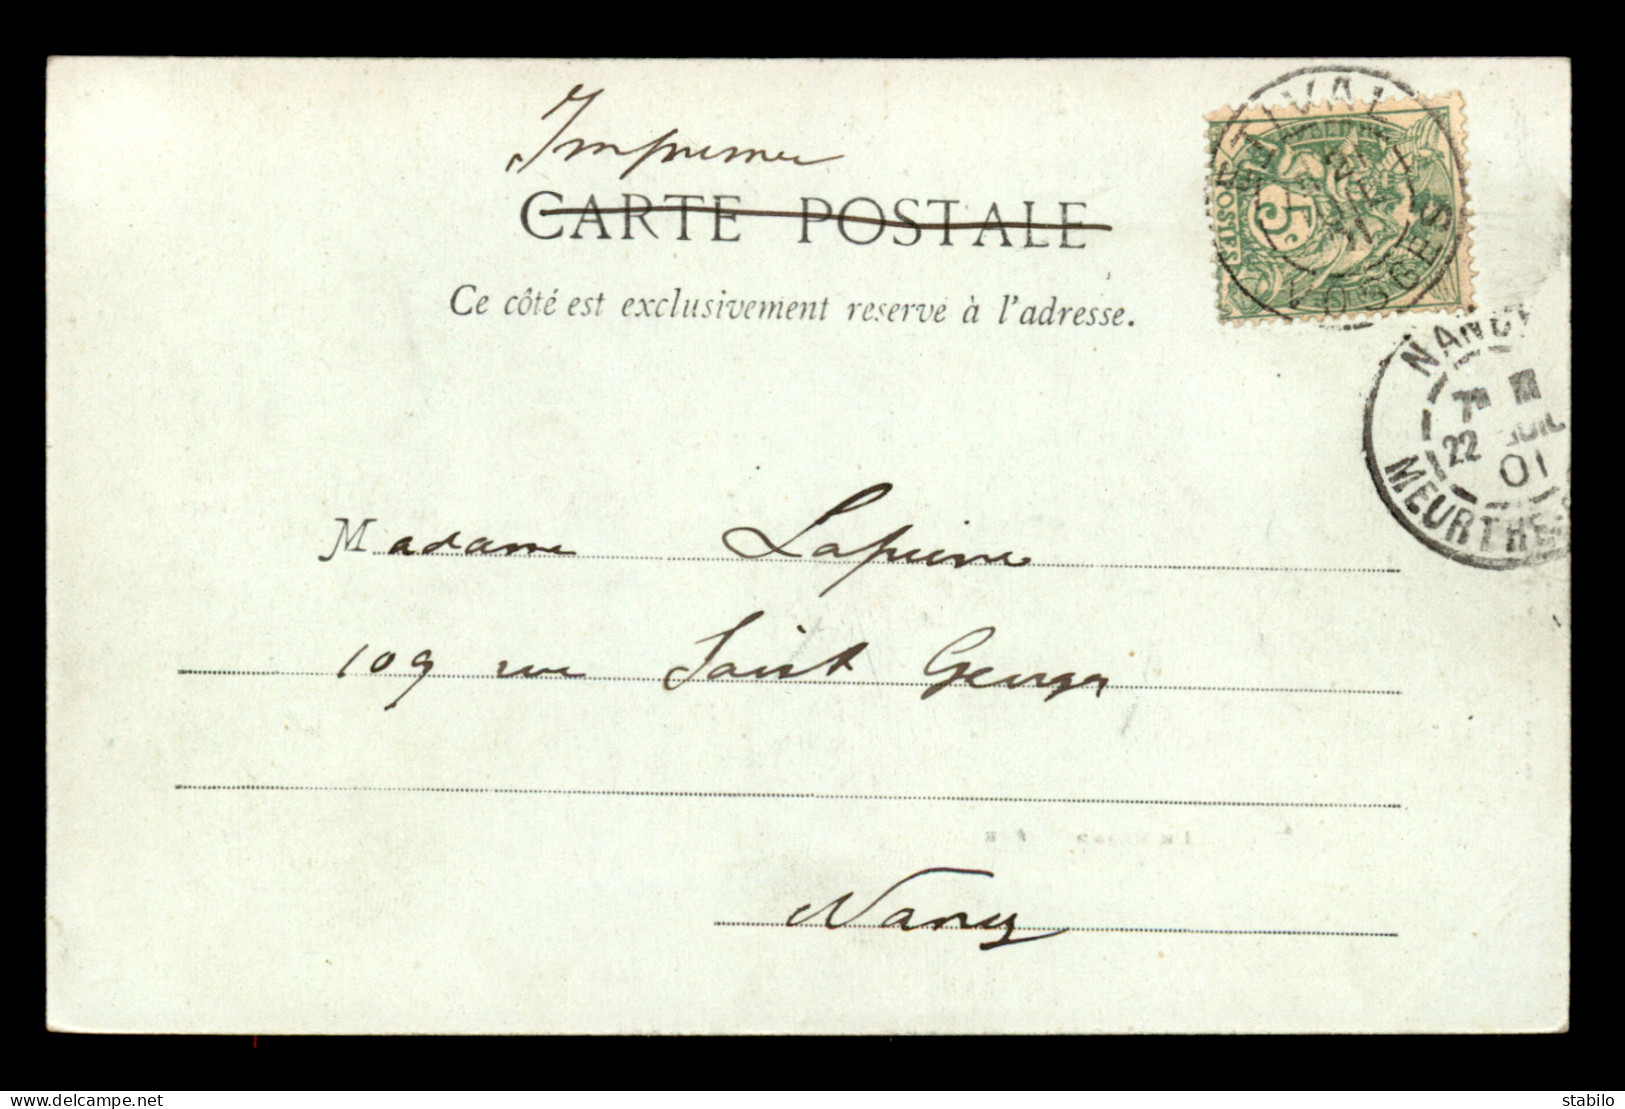 Imprimé
CARTE POSTALE
Ce côté est exclusivement reservé à l'adresse.
5c
POSTES
ETIVAL
VOSGES
NANCY
7E
22 JUIL
01
MEURTHE
Madame Lapierre
109 rue Saint Georges
Nancy
delcampe.net
stabilo